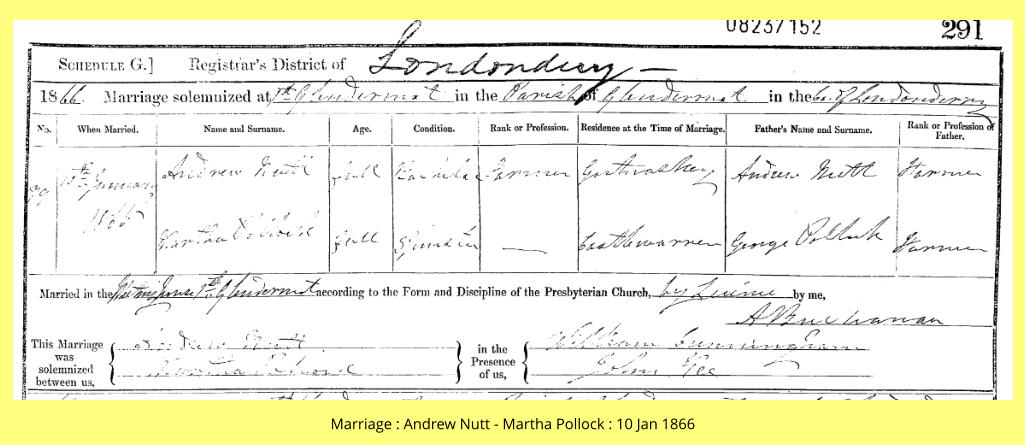 08237152
291
SCHEDULE G.] Registrar's District of Londonderry
1866. Marriage solemnized at 1st Glendermot in the Parish of Glendermot in the Co. of Londonderry
No. When Married. Name and Surname. Age. Condition. Rank or Profession. Residence at the Time of Marriage. Father's Name and Surname. Rank or Profession of Father.
10th January 1866 Andrew Nutt full Bachelor Farmer Andrew Nutt Farmer
Martha Pollock full Spinster — Castlewarren George Pollock Farmer
Married in the Meeting house 1st Glendermot according to the Form and Discipline of the Presbyterian Church, by License by me,
A Buchanan
This Marriage was solemnized between us, Andrew Nutt in the Presence of us, William Cunningham
Martha John
Marriage : Andrew Nutt - Martha Pollock : 10 Jan 1866